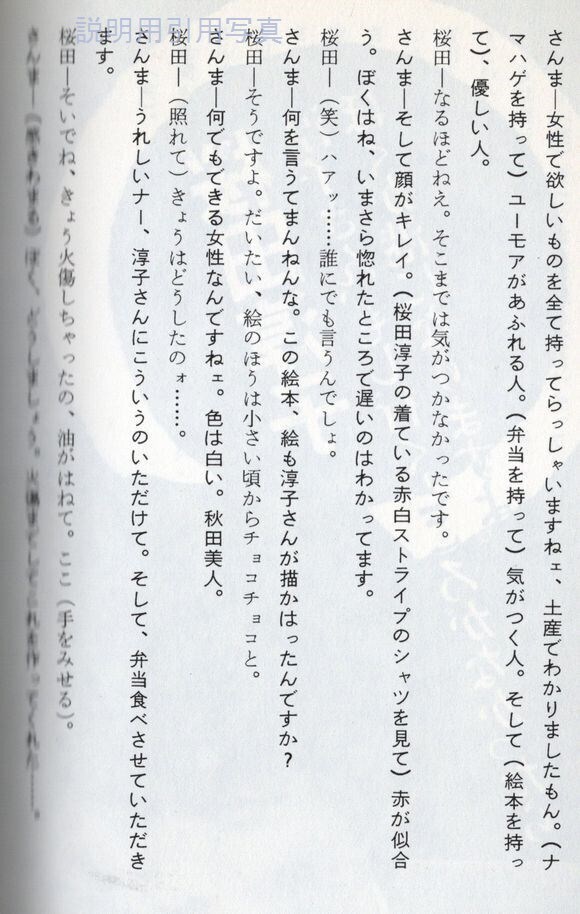 説明用引用写真
さんま―女性で欲しいものを全て持ってらっしゃいますねェ、土産でわかりましたもん。（ナ
マハゲを持って）ユーモアがあふれる人。（弁当を持って）気がつく人。そして（絵本を持っ
て）、優しい人。
桜田―なるほどねえ。そこまでは気がつかなかったです。
さんま―そして顔がキレイ。（桜田淳子の着ている赤白ストライプのシャツを見て）赤が似合
う。ぼくはね、いまさら惚れたところで遅いのはわかってます。
桜田―（笑）ハアッ……誰にでも言うんでしょ。
さんま―何を言うてまんねんな。この絵本、絵も淳子さんが描かはったんですか？
桜田―そうですよ。だいたい、絵のほうは小さい頃からチョコチョコと。
さんま―何でもできる女性なんですねェ。色は白い。秋田美人。
桜田―（照れて）きょうはどうしたのォ……。
さんま―うれしいナー、淳子さんにこういうのいただけて。そして、弁当食べさせていただき
ます。
桜田―そいでね、きょう火傷しちゃったの、油がはねて。ここ（手をみせる）。
さんま―ぼく、どうしましょう。火傷までしてこれを作ってくれた……。